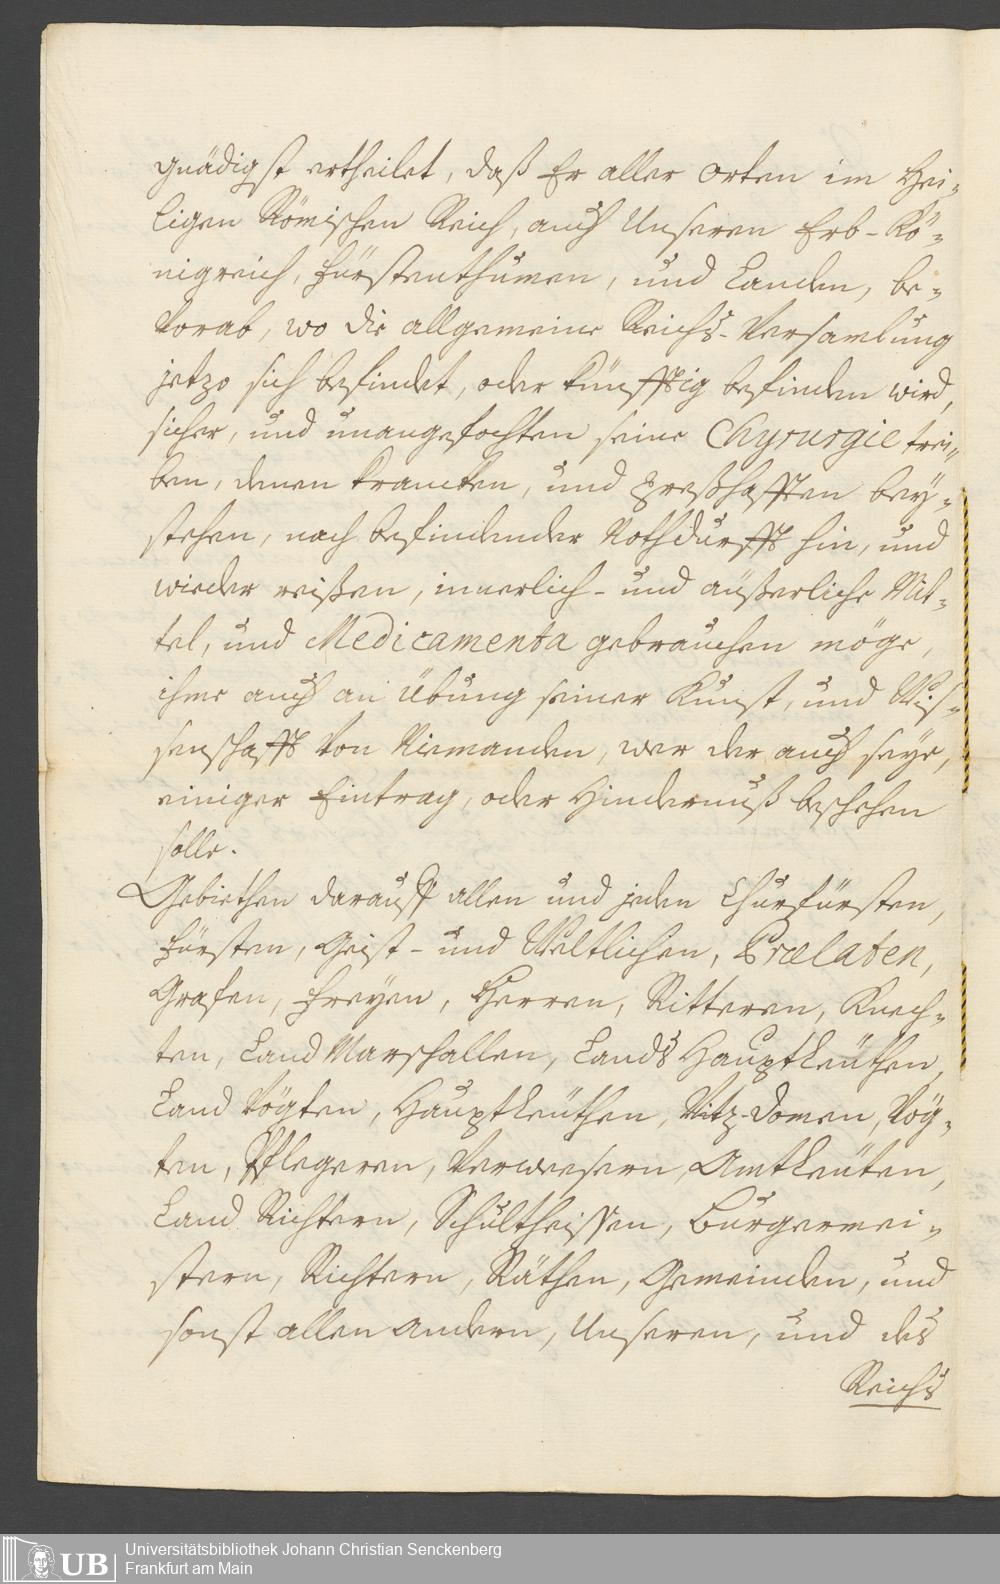 gnädigst ertheilet, daß Er aller orten im Hei-
ligen Römischen Reich, auch Unseren Erb-Kö-
nigreich, Fürstenthumen, und Landen, be-
Vorab, wo die allgemeine Reichs-Versamlung
jetzo sich befindet, oder künfftig befinden wird,
sicher, und unangefochten seine Chyrurgie trei-
ben, denen krancken, und Preßhafften bey-
stehen, nach befindender Nothdurfft hin, und
wieder reißen, innerlich- und äußerliche Mit-
tel, und Medicamenta gebrauchen möge,
ihme auch an Übung seiner Kunst, und Wis-
senschafft Von Niemanden, wer der auch seye,
einiger Eintrag, oder Hindernuß beschehen
solle.
Gebiethen darauff allen und jeden Churfürsten,
Fürsten, Geist- und Weltlichen, Prælaten,
Grafen, Freyen, Herren, Ritteren, Knech-
ten, Land Marschallen, Lands Hauptleüthen,
Land Vögten, Hauptleüthen, Vitz-Domen, Vög-
ten, Pflegeren, Verwesern, Amtleüten,
Land Richtern, Schultheissen, Burgermei-
stern, Richtern, Räthen, Gemeinden, und
sonst allen andern, Unseren, und des
Reichs
UB Universitätsbibliothek Johann Christian Senckenberg
Frankfurt am Main